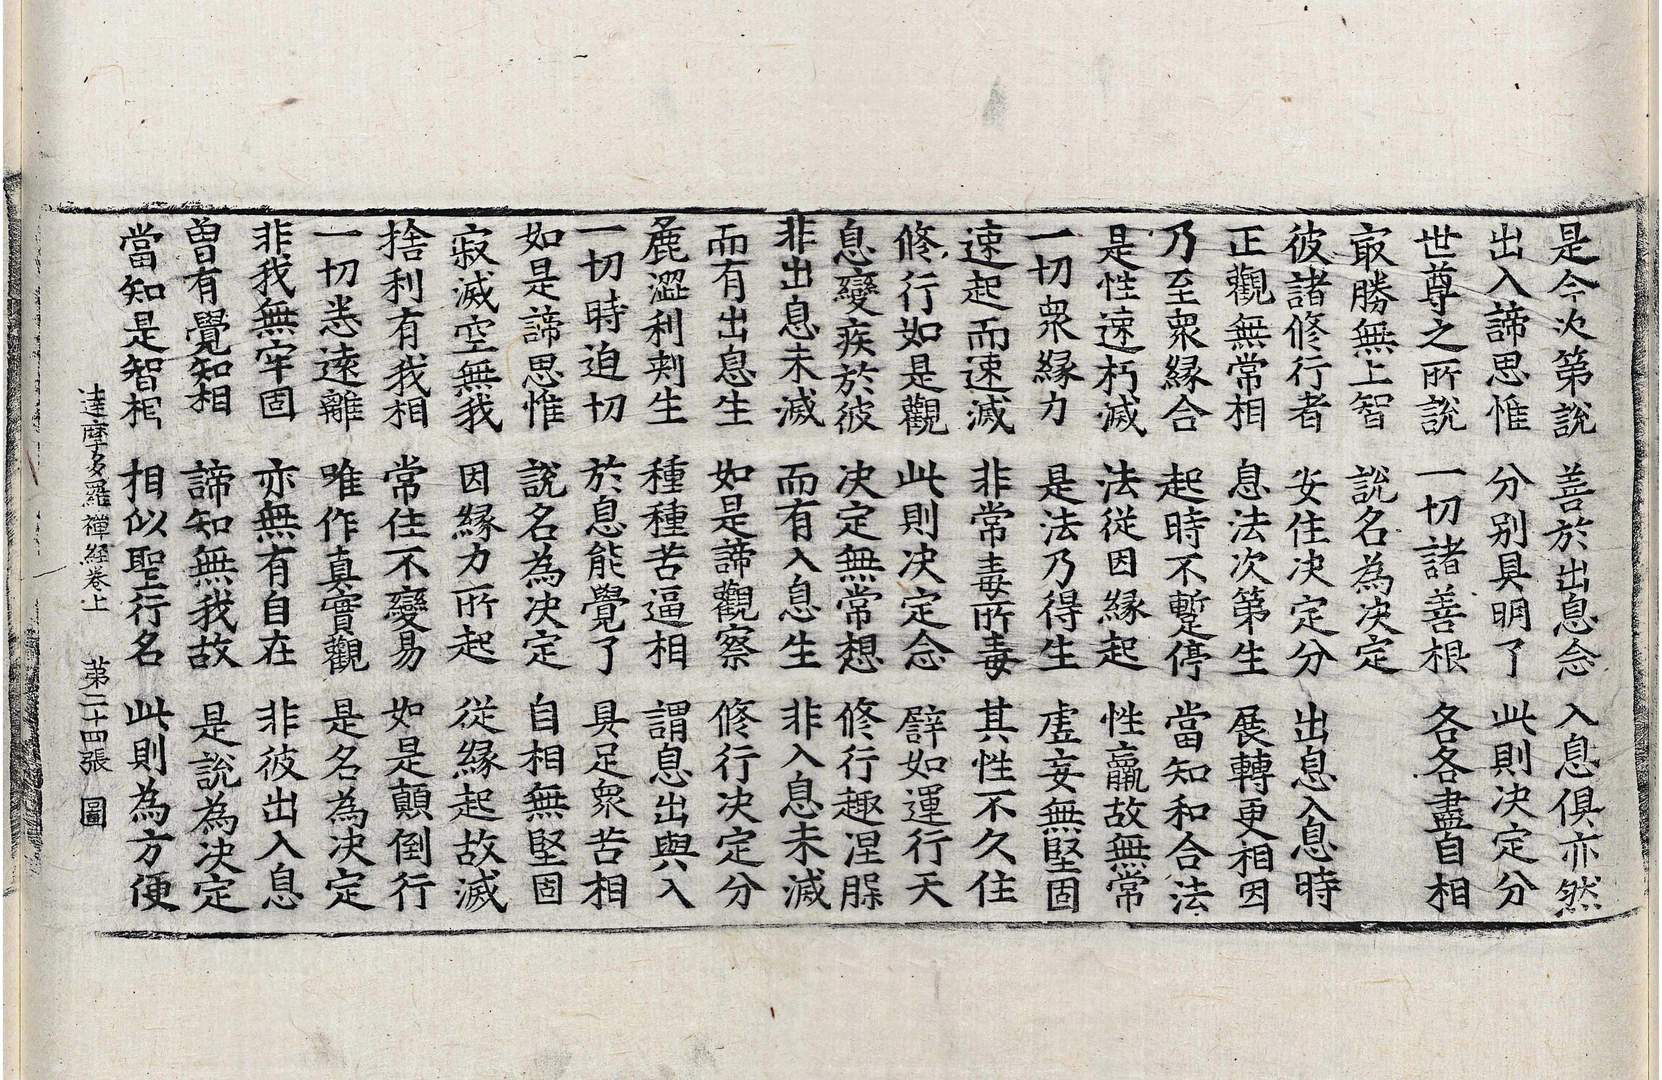 是今次第說 善於出息念 入息俱亦然
出入諦思惟 分别具明了 此則决定分
世尊之所說 一切諸善根 各各盡自相
㝡勝無上智 說名為决定
彼諸修行者 安住决定分 出息入息時
正觀無常相 息法次第生 展轉更相因
乃至衆緣合 起時不暫停 當知和合法
是性速朽滅 法從因緣起 性羸故無常
一切衆緣力 是法乃得生 虛妄無堅固
速起而速滅 非常毒所毒 其性不久住
修行如是觀 此則决定念 譬如運行天
息變疾於彼 决定無常想 修行趣涅槃
非出息未滅 而有入息生 非入息未滅
而有出息生 如是諦觀察 修行决定分
麁澀利刾生 種種苦逼相 謂息出與入
一切時迫切 於息能覺了 具足衆苦相
如是諦思惟 說名為决定 自相無堅固
寂滅空無我 因緣力所起 從緣起故滅
捨利有我相 常住不變易 如是顛倒行
一切悉遠離 唯作真實觀 是名為决定
非我無牢固 亦無有自在 非彼出入息
曽有覺知相 諦知無我故 是說為决定
當知是智相 相似聖行名 此則為方便
達摩多羅禪経卷上 第二十四張 圖